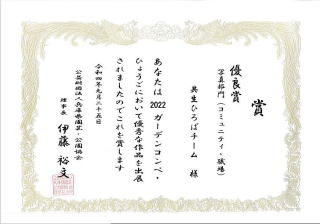 賞
優良賞
写真部門(コミュニティ・職場)
共生ひろばチーム 様
あなたは2022ガーデンコンペ・
ひょうごにおいて優秀な作品を出展
されましたのでこれを賞します
令和四年九月二十五日
公益財団法人兵庫県園芸・公園協会
理事長 伊藤裕文